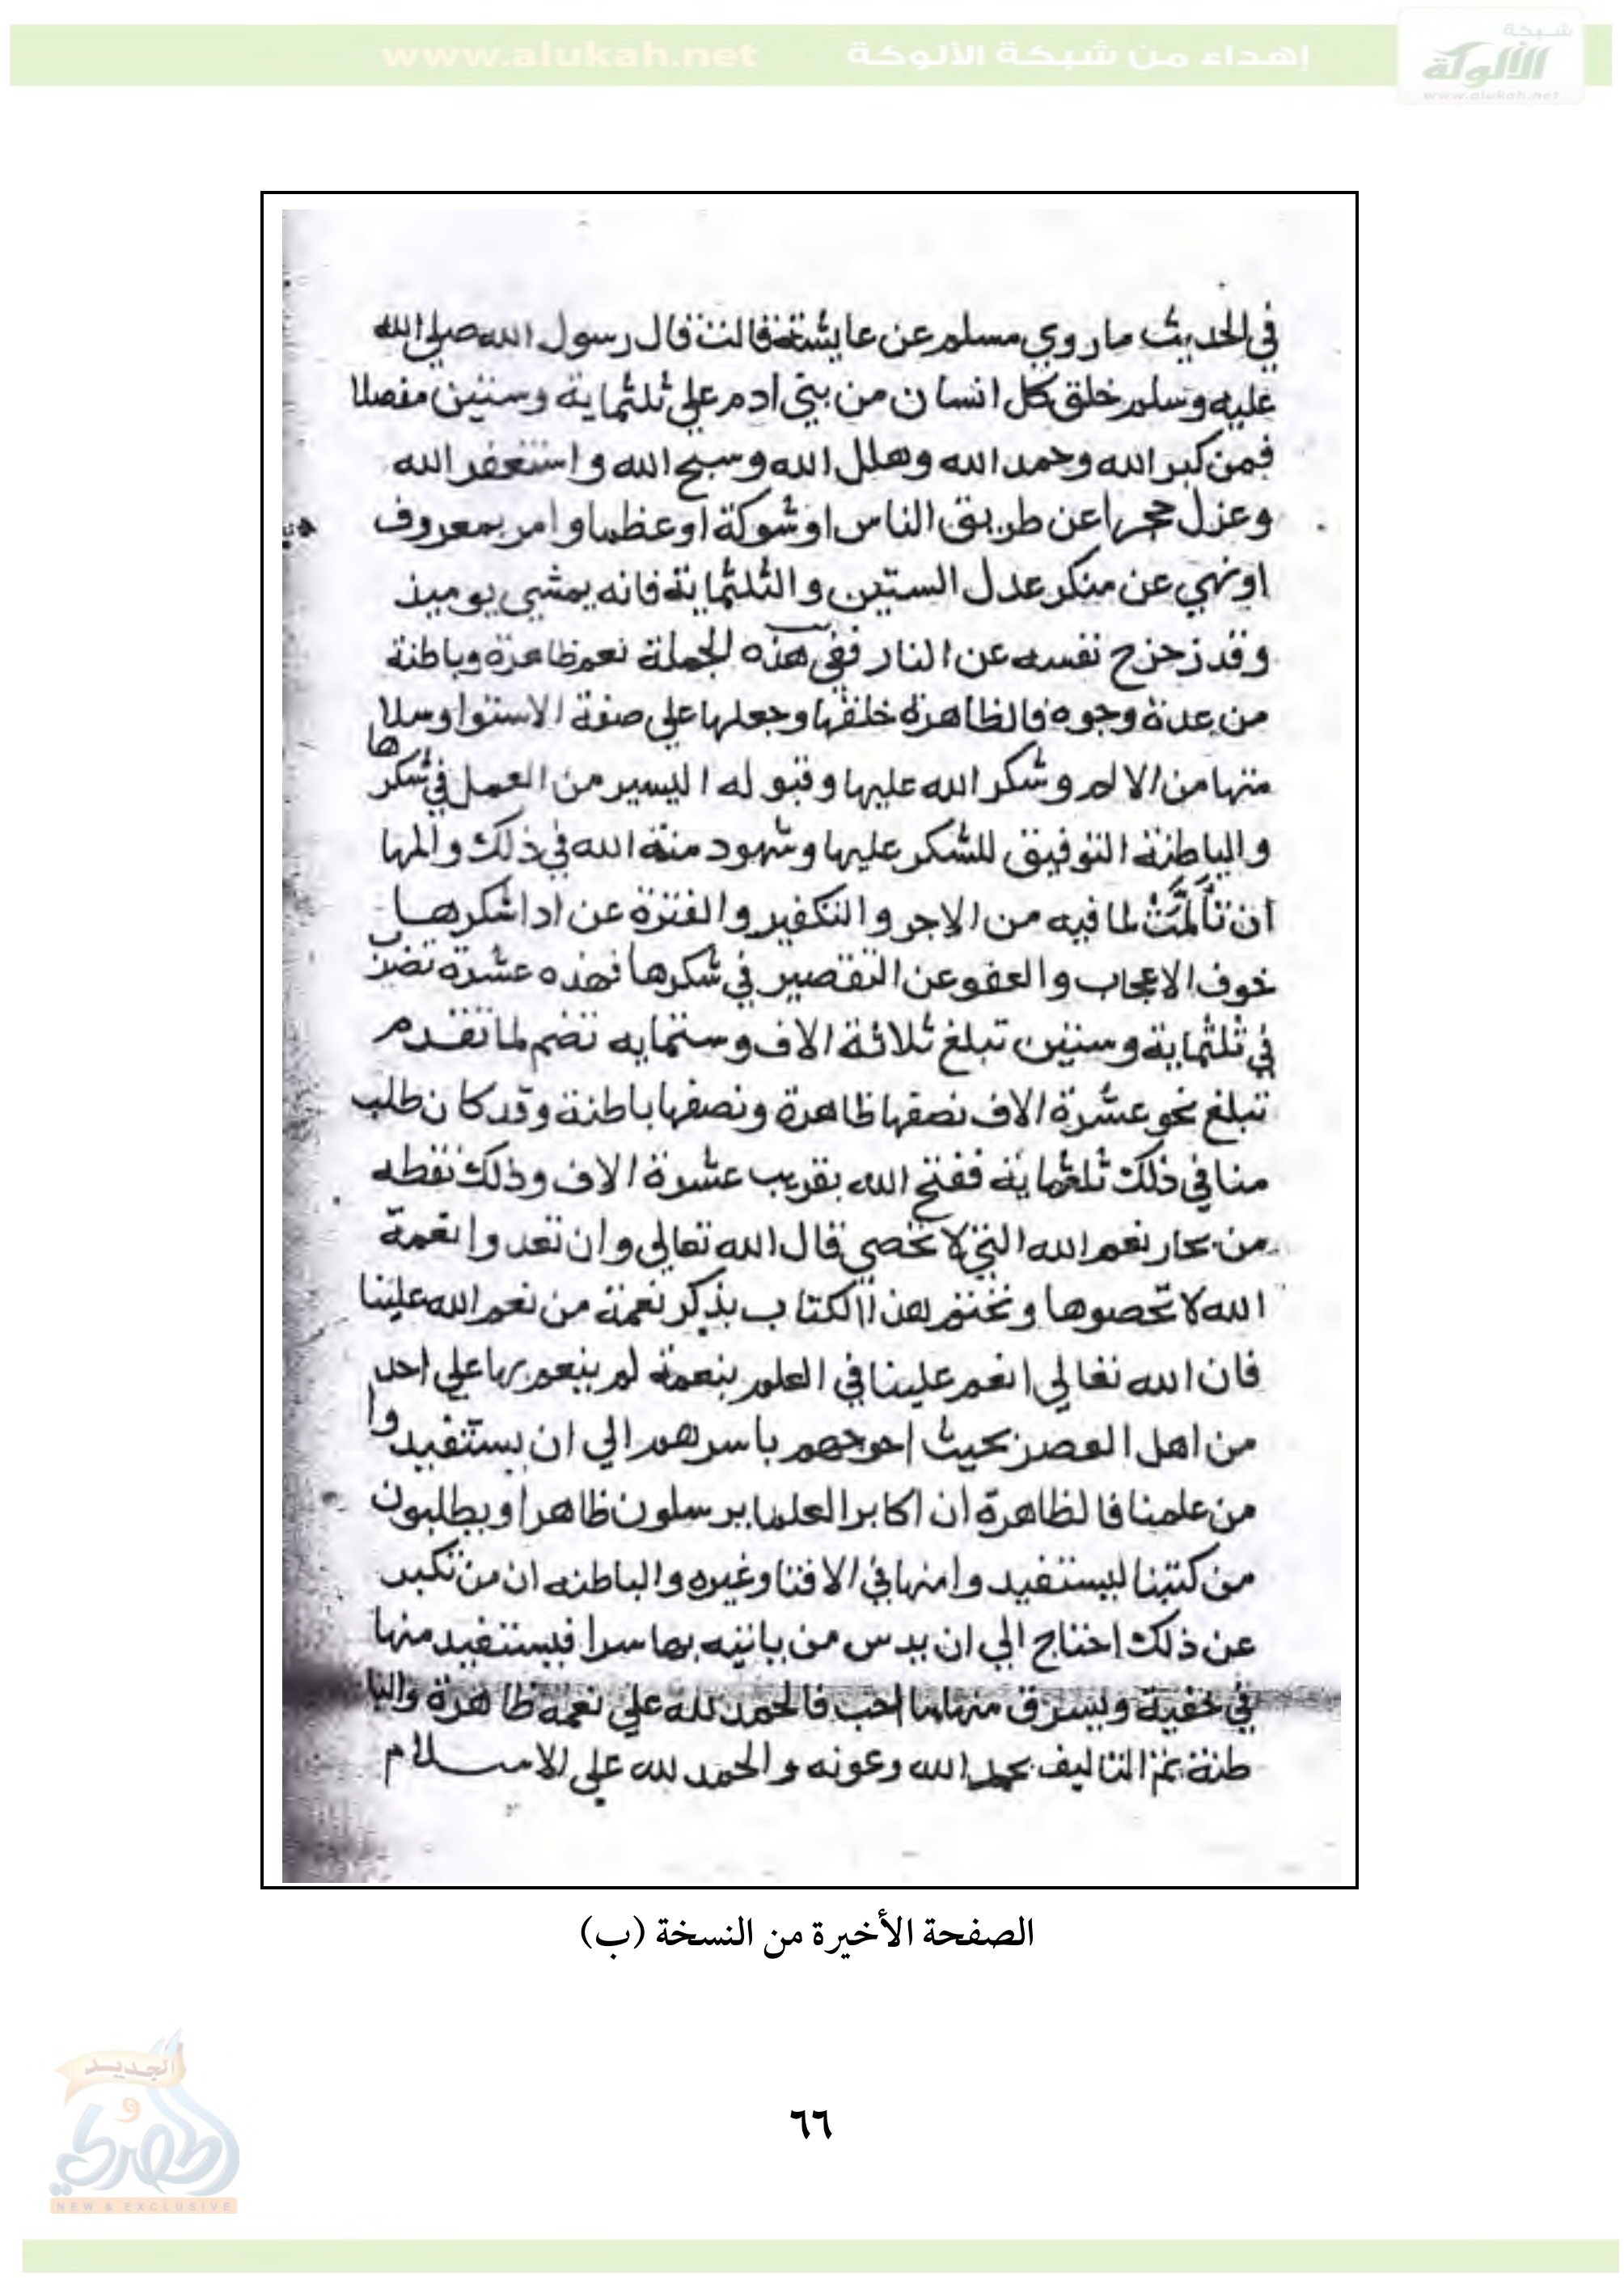 شبكة
الألوكة
www.alukah.net
إهداء من شبكة الألوكة www.alukah.net
في الحديث ما روي مسلم عن عايشة قالت قال رسول الله صلي الله
عليه وسلم خلق كل انسان من بني ادم علي ثلثماية وستين مفصلا
فمن كبر الله وحمد الله وهلل الله وسبح الله واستغفر الله
وعزل حجرا عن طريق الناس او شوكة او عظما وامر بمعروف
او نهي عن منكر عدل الستين والثلثماية فانه يمشي يوميذ
وقد زحزح نفسه عن النار ففي هذه الجملة نعم ظاهرة وباطنة
من عدة وجوه فالظاهرة خلقها وجعلها علي صفة الاستوا وسلا
منها من الالم وشكر الله عليها وقبوله اليسير من العمل في شكرها
والباطنة التوفيق للشكر عليها وشهود منة الله في ذلك والمها
ان تألمت لما فيه من الاجر والتكفير والفترة عن ادا شكرها
خوف الاعجاب والعفو عن التقصير في شكرها فهذه عشرة تضرب
في ثلثماية وستين تبلغ ثلاثة الاف وستمايه تضم لما تقدم
تبلغ نحو عشرة الاف نصفها ظاهرة ونصفها باطنة وقد كان طلب
منا في ذلك ثلثماية ففتح الله بقريب عشرة الاف وذلك نقطه
من بحار نعم الله التي لا تحصي قال الله تعالي وان تعدوا نعمة
الله لا تحصوها ونختم هذا الكتاب بذكر نعمة من نعم الله علينا
فان الله تعالي انعم علينا في العلم بنعمة لم ينعم بها علي احد
من اهل العصر بحيث احوجهم باسرهم الي ان يستفيدوا
من علمنا فالظاهرة ان اكابر العلما يرسلون ظاهرا ويطلبون
من كتبنا ليستفيدوا منها في الافتا وغيره والباطنه ان من تكبر
عن ذلك احتاج الي ان يدس من ياتيه بها سرا فيستفيد منها
في خفية ويسرق منها ما احب فالحمد لله علي نعمه ظاهرة والبا
طنة تم التاليف بحمد الله وعونه والحمد لله علي الاسلام
الصفحة الأخيرة من النسخة (ب)
الجديد
و
الحصري
NEW & EXCLUSIVE
٦٦